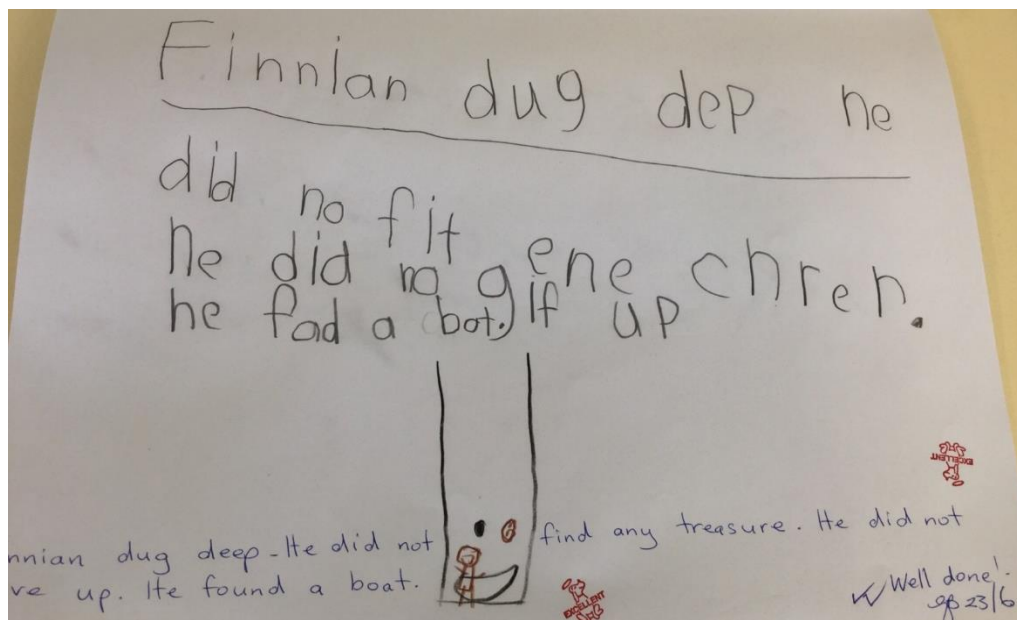 Finnian dug dep he
did no fit ene chren.
he did no gif up
he fad a bot.
nnian dug deep - He did not find any treasure. He did not
ve up. He found a boat.
EXCELLENT
EXCELLENT
Well done!
23/6